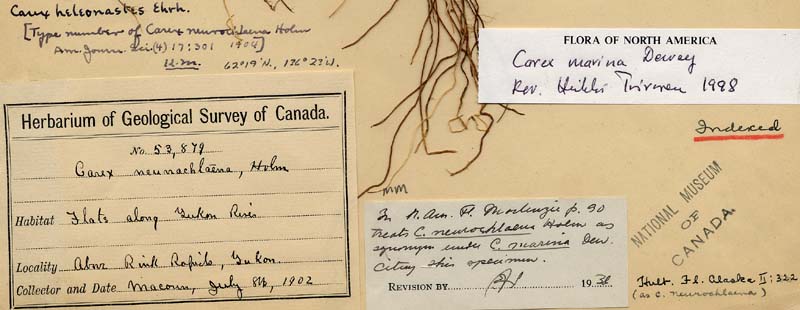 Carex heleonastes Ehrh.
[Type number of Carex neurochlaena Holm
Am. Journ. Sci. (4) 17:301 1904]
62°19'N., 136°23'W.
FLORA OF NORTH AMERICA
Carex marina Dewey
Rev. Heikki Toivonen 1998
Indexed
Herbarium of Geological Survey of Canada.
No. 53,879
Carex neurochlaena, Holm
Habitat Flats along Yukon River
Locality Above Rink Rapids, Yukon.
Collector and Date Macoun, July 8th, 1902
mm
In N. Am. Fl. Mackenzie p. 90
treats C. neurochlaena Holm as
synonym under C. marina Dew.
citing this specimen.
REVISION BY 19
NATIONAL MUSEUM
OF
CANADA.
Hult. Fl. Alaska II: 322
(as C. neurochlaena)